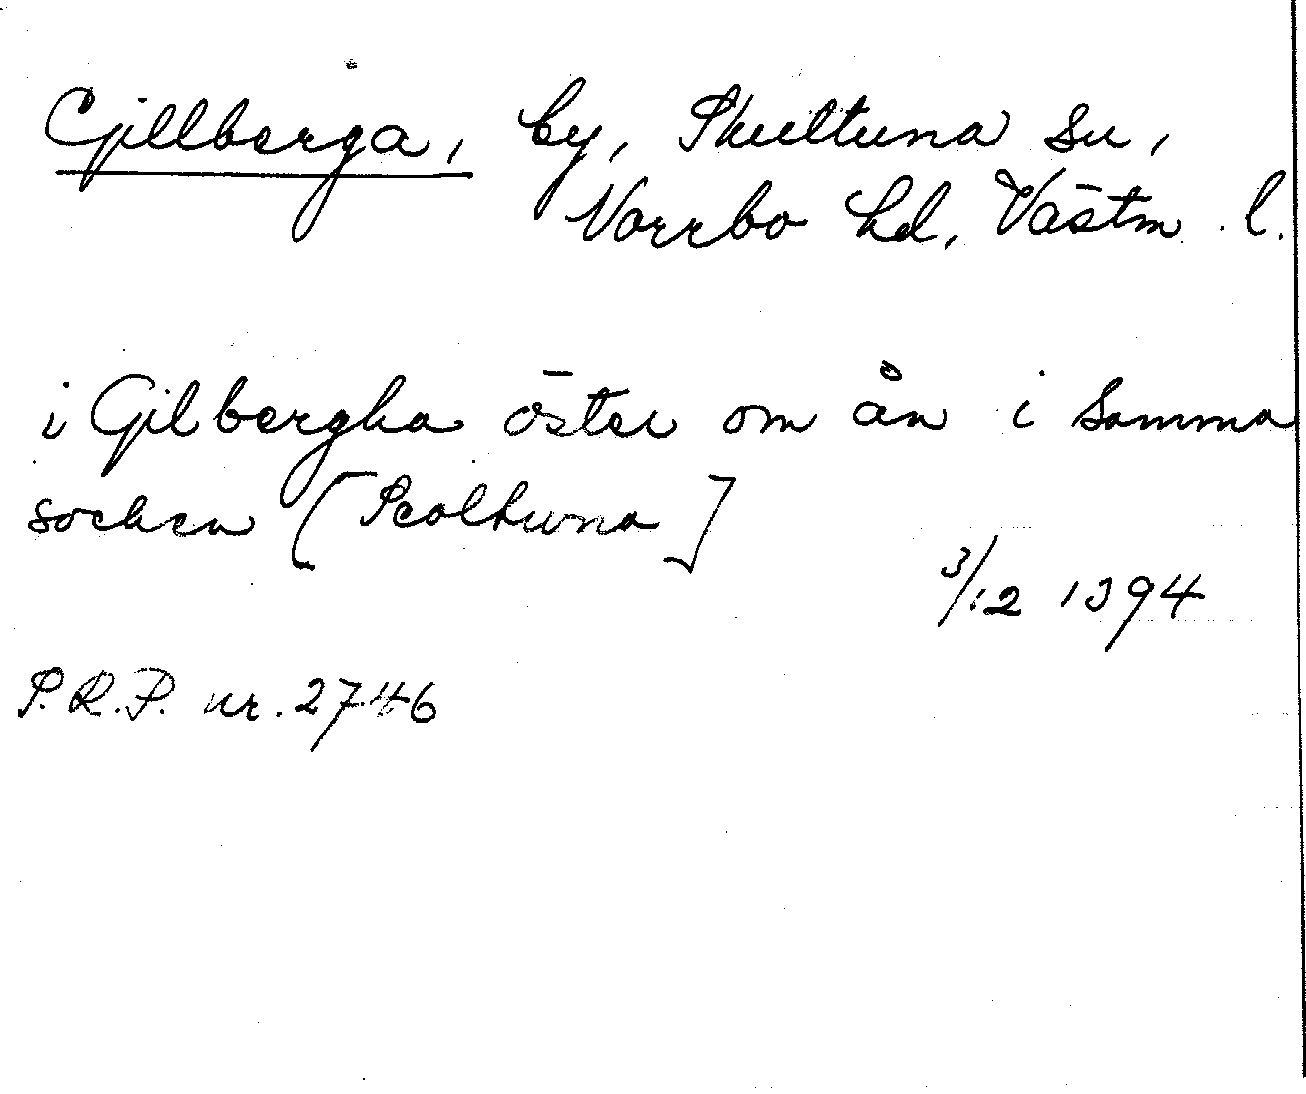 Gillberga, by, Skultuna sn,
Norrbo hd, Västm. l.
i Gilbergha öster om ån i samma
socken [Scoltuna]
3/12 1394
S.R.P. nr. 2746